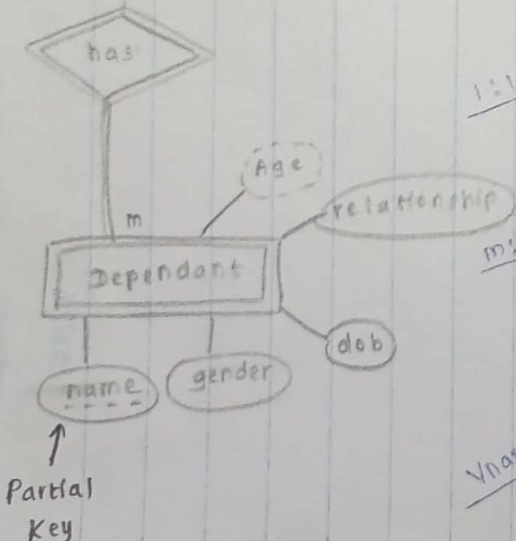 has
1:1
Age
relationship
m
m:
Dependant
dob
name
gender
Partial
Key